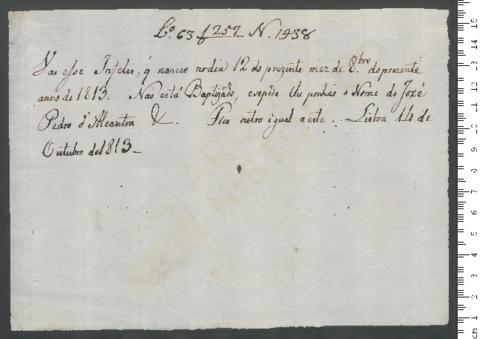 Lº 63 f 257 N. 1438
Vai esse Infeliz, q nasceu no dia 12 do prezente mez de 8bro do prezente
anno de 1813. Não está Baptizado, e se pede lhe ponhão o Nome de Jozé
Pedro d'Alcantra &. Fica outro igual a este. Lisboa 14 de
Outubro de 1813_